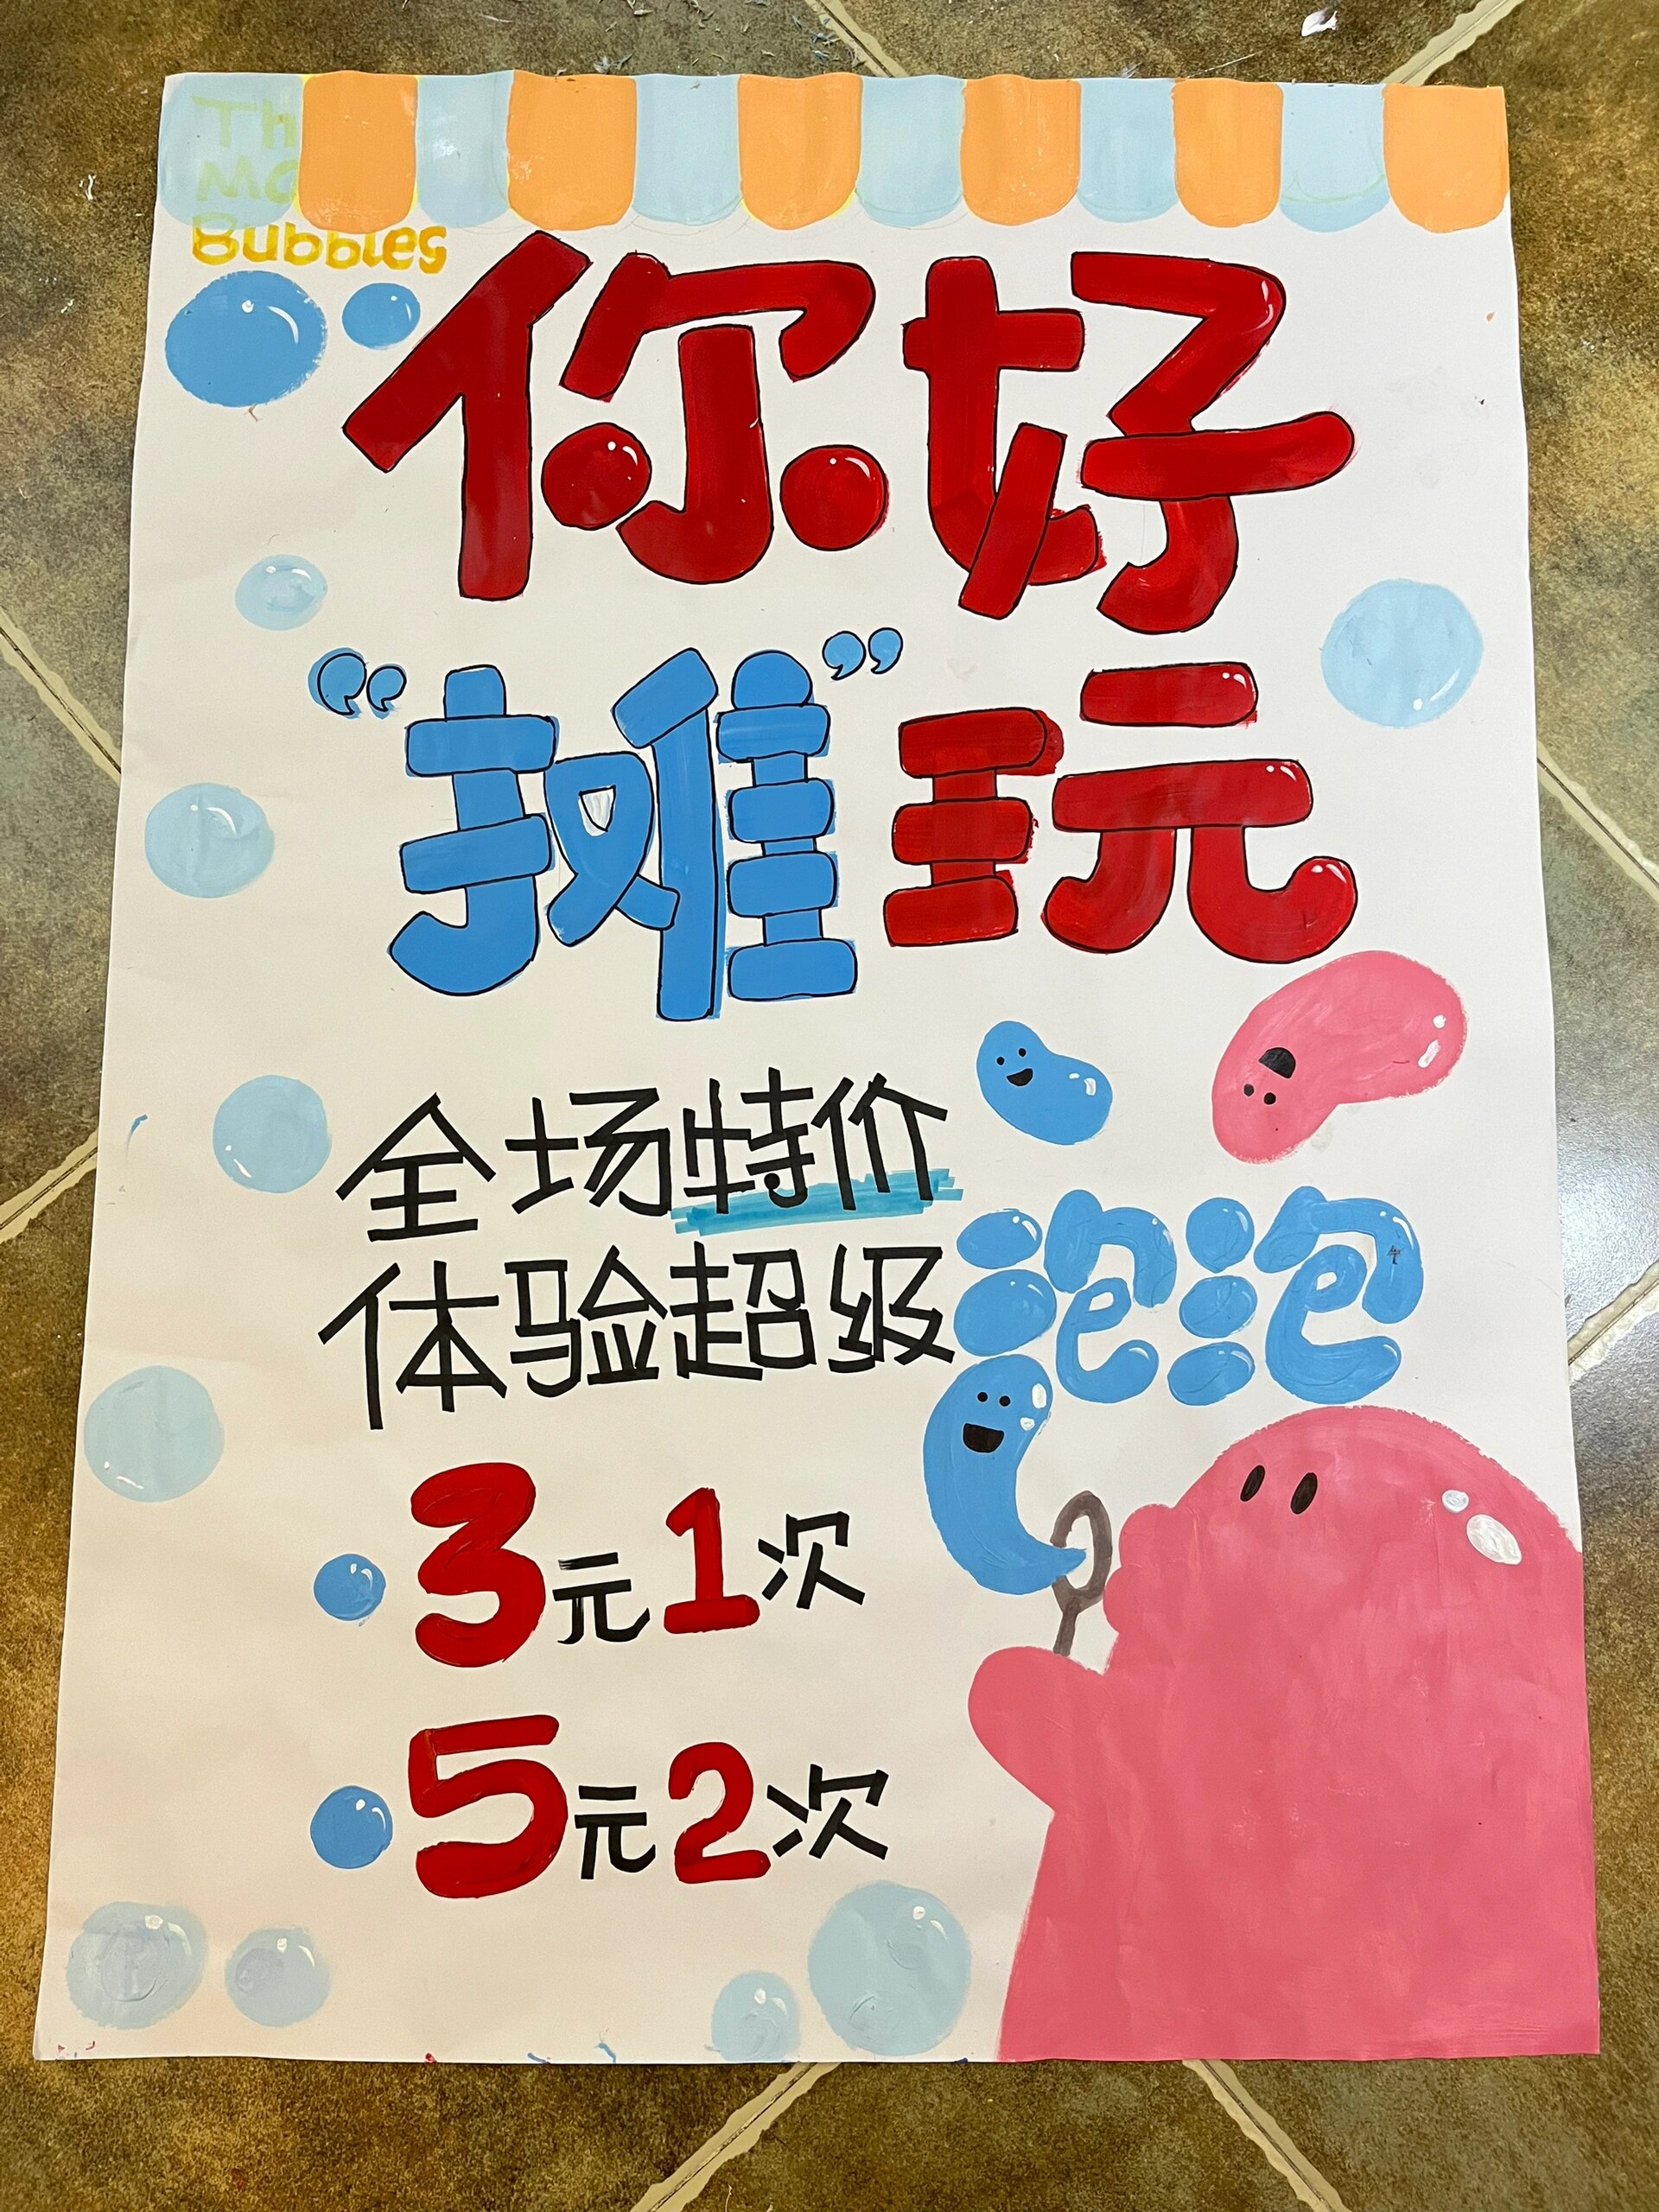 Bubbles
你好
“摊”玩
全场特价
体验超级泡泡
3元1次
5元2次